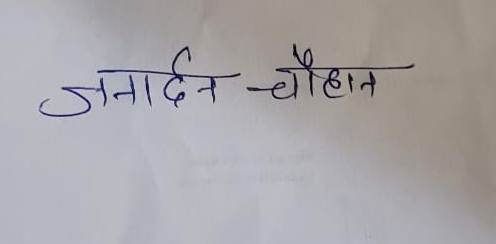 जनार्दन चौहान